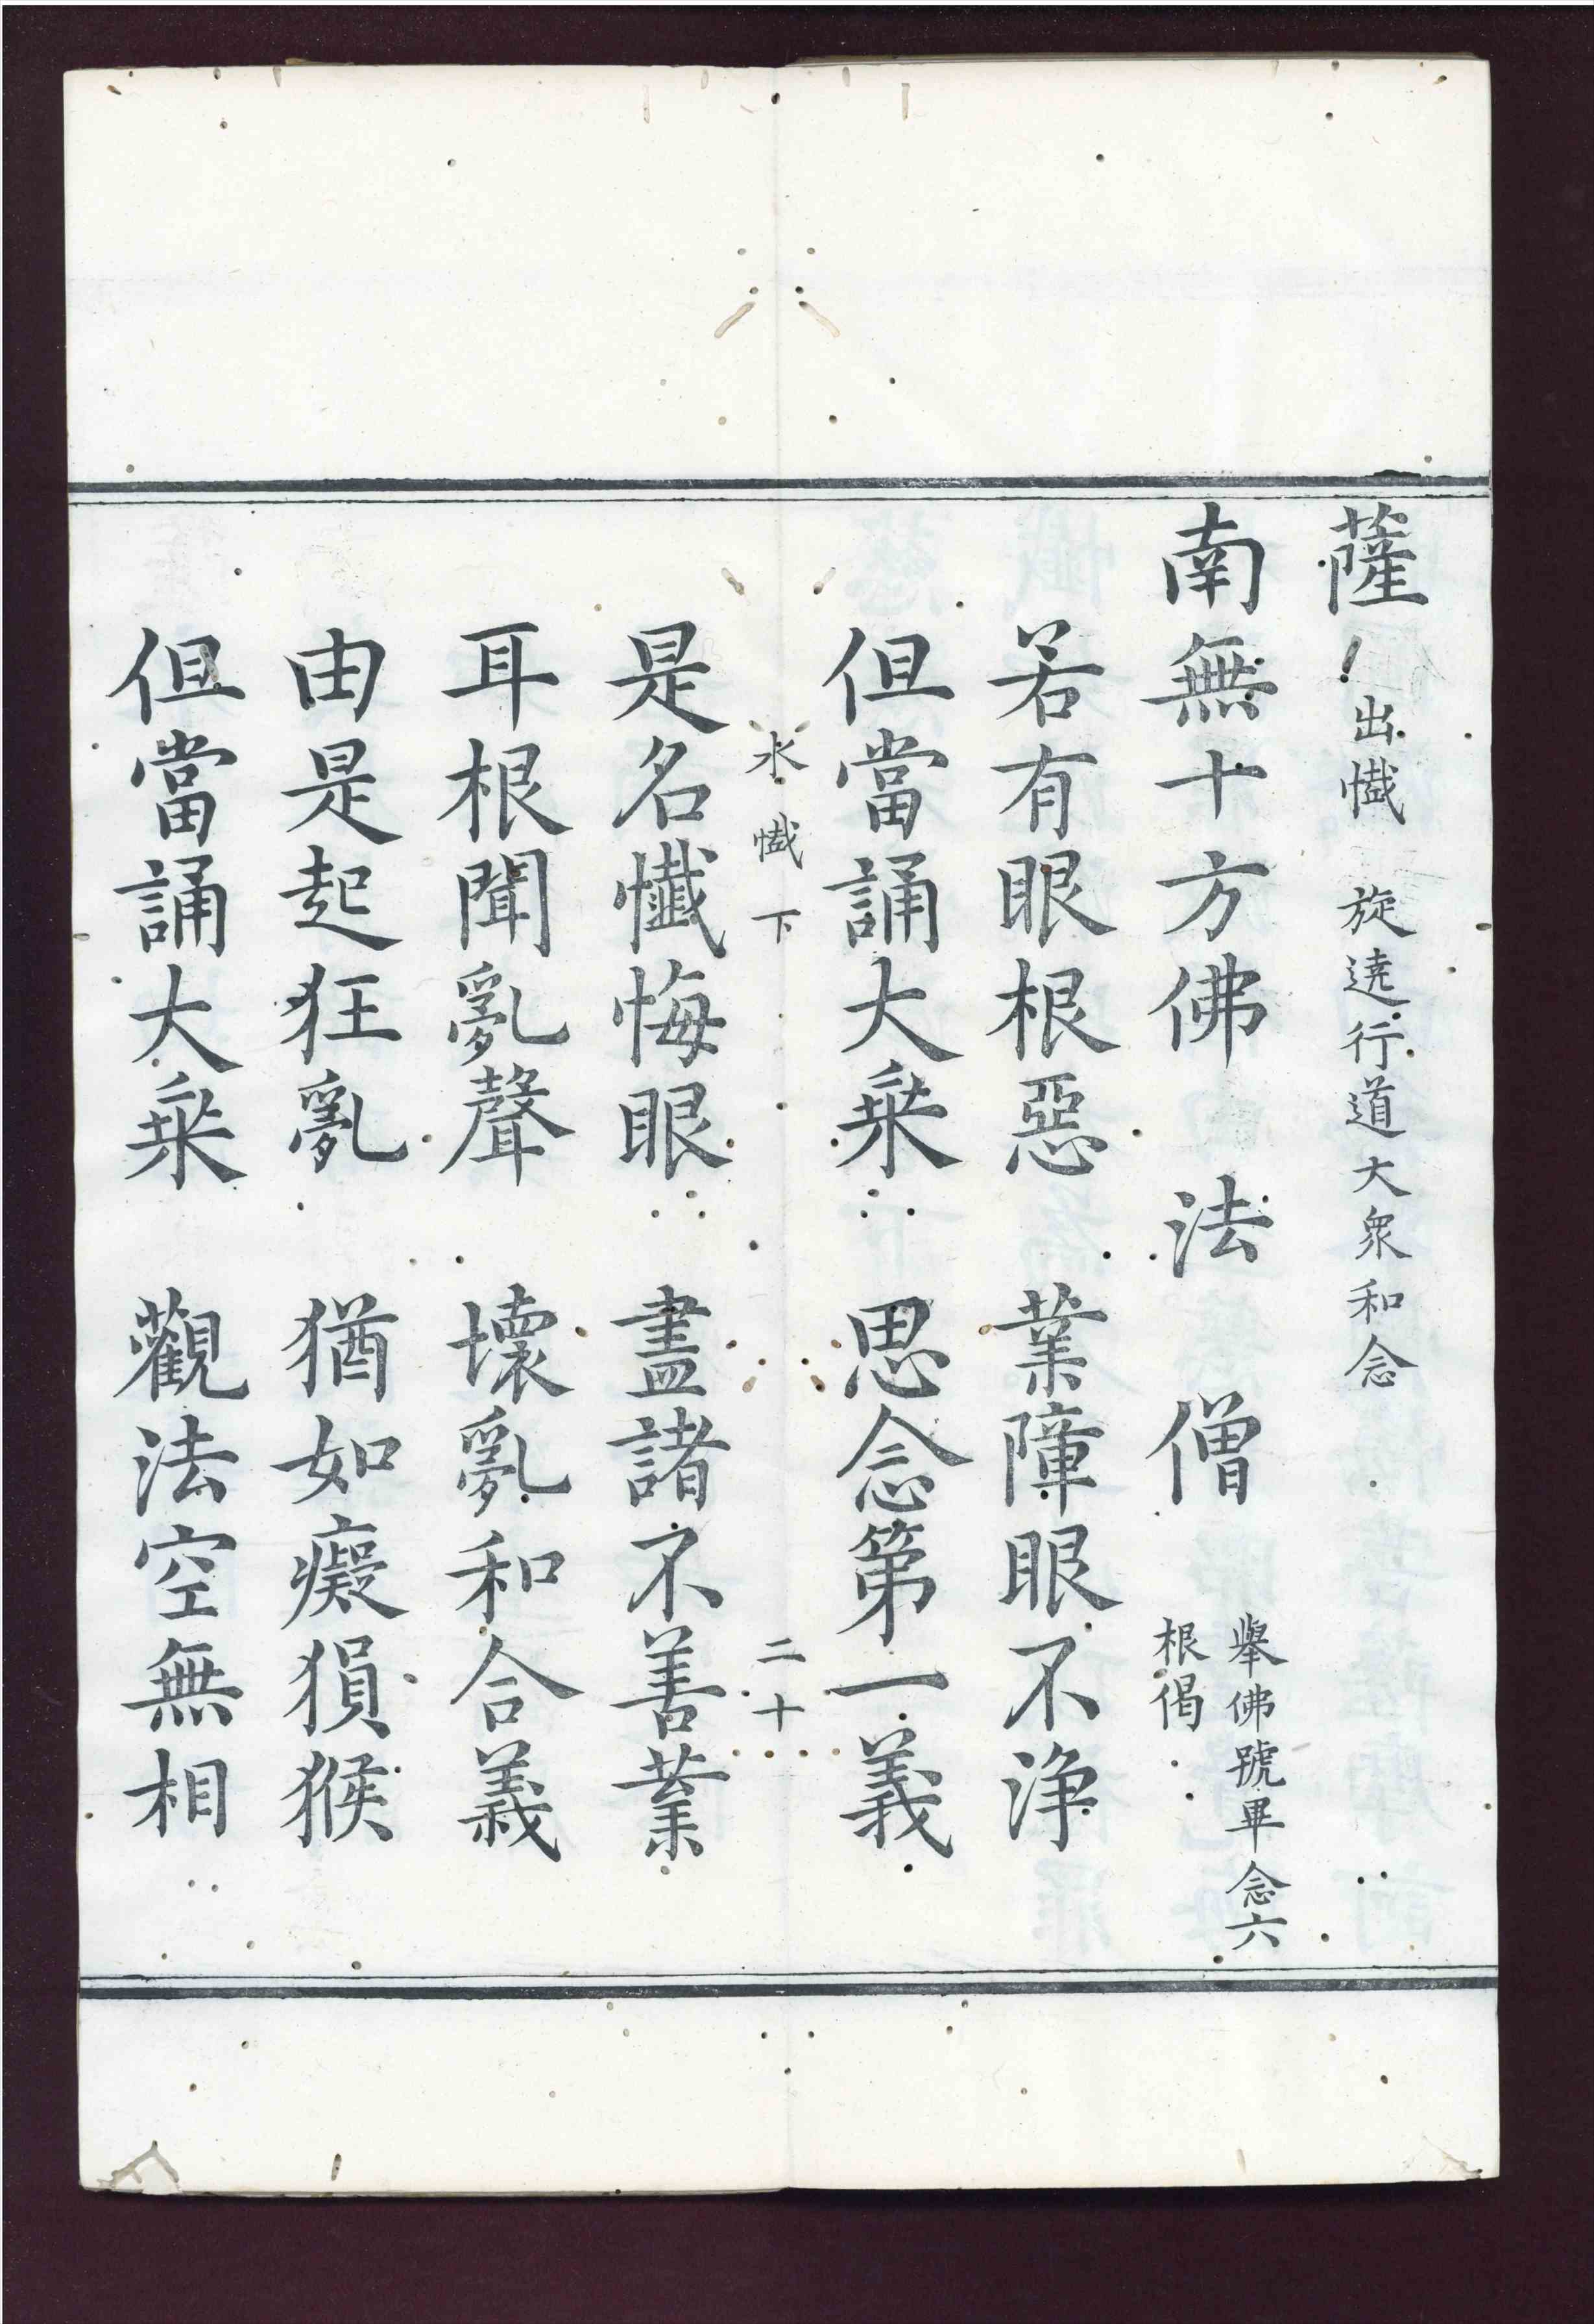 薩 出懺 旋遶行道大眾和念
南無十方佛 法 僧 舉佛號畢念六
根偈
若有眼根惡 業障眼不淨
但當誦大乘 思念第一義
水懺下 二十
是名懺悔眼 盡諸不善業
耳根聞亂聲 壞亂和合義
由是起狂亂 猶如癡猨猴
但當誦大乘 觀法空無相